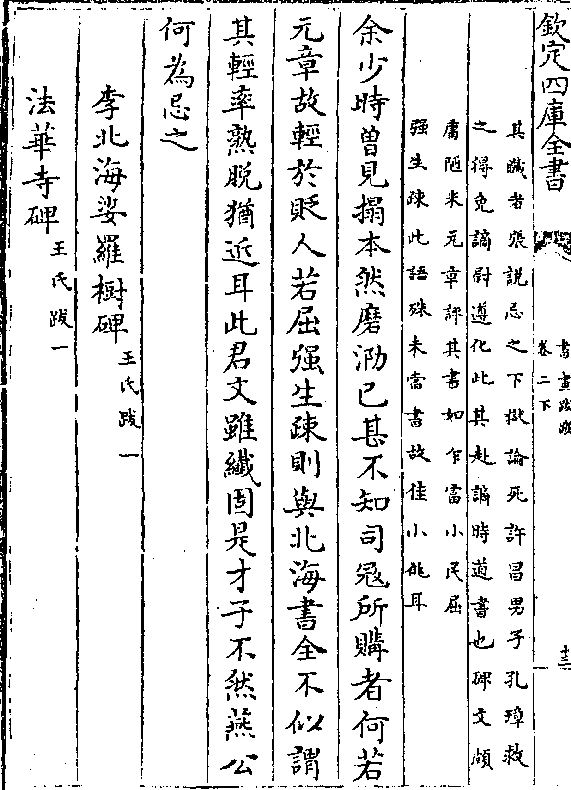 欽定四庫全書
書畫跋跋
卷二下
十三
其贓者張說忌之下獄論死許昌男子孔璋救
之得免謫尉遵化此其赴謫時道書也碑文頗
庸陋米元章評其書如乍富小民屈
强生疎此語殊未當書故佳小佻耳
余少時曾見搨本然磨泐已甚不知司寇所購者何若
元章故輕於貶人若屈强生疎則與北海書全不似謂
其輕率熟脫猶近耳此君文雖纎固是才子不然燕公
何為忌之
李北海娑羅樹碑王氏跋一
法華寺碑王氏跋一